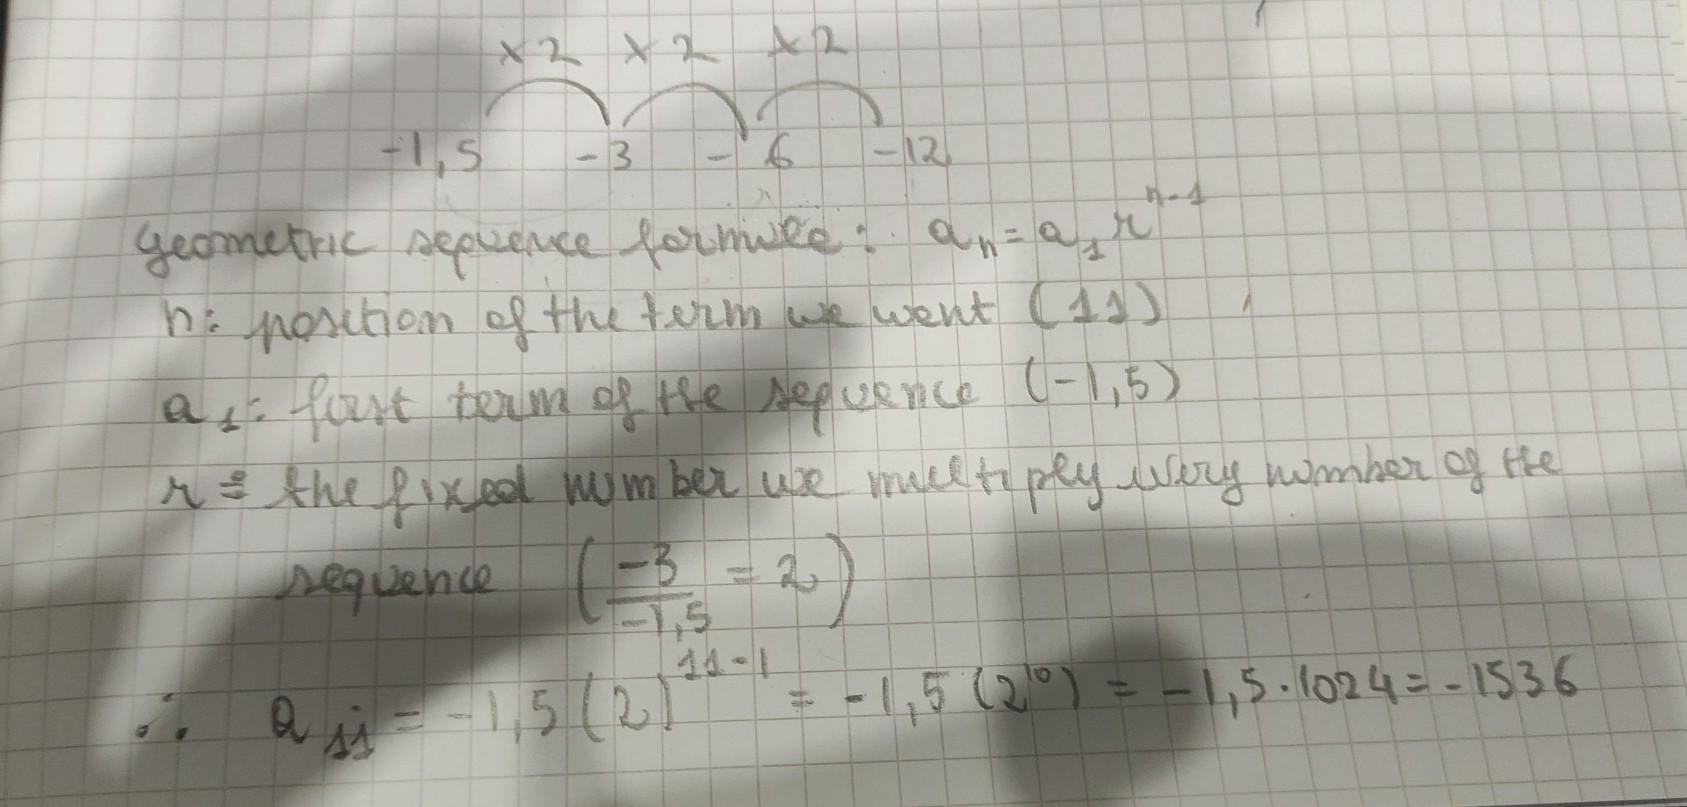 ×2 ×2 ×2
-1,5 -3 -6 -12
Geometric sequence formula: aₙ = a₁ rⁿ⁻¹
n: position of the term we want (11)
a₁: first term of the sequence (-1,5)
r = the fixed number we multiply every number of the
sequence (-3/-1,5 = 2)
∴ a₁₁ = -1,5(2)¹¹⁻¹ = -1,5(2¹⁰) = -1,5·1024 = -1536